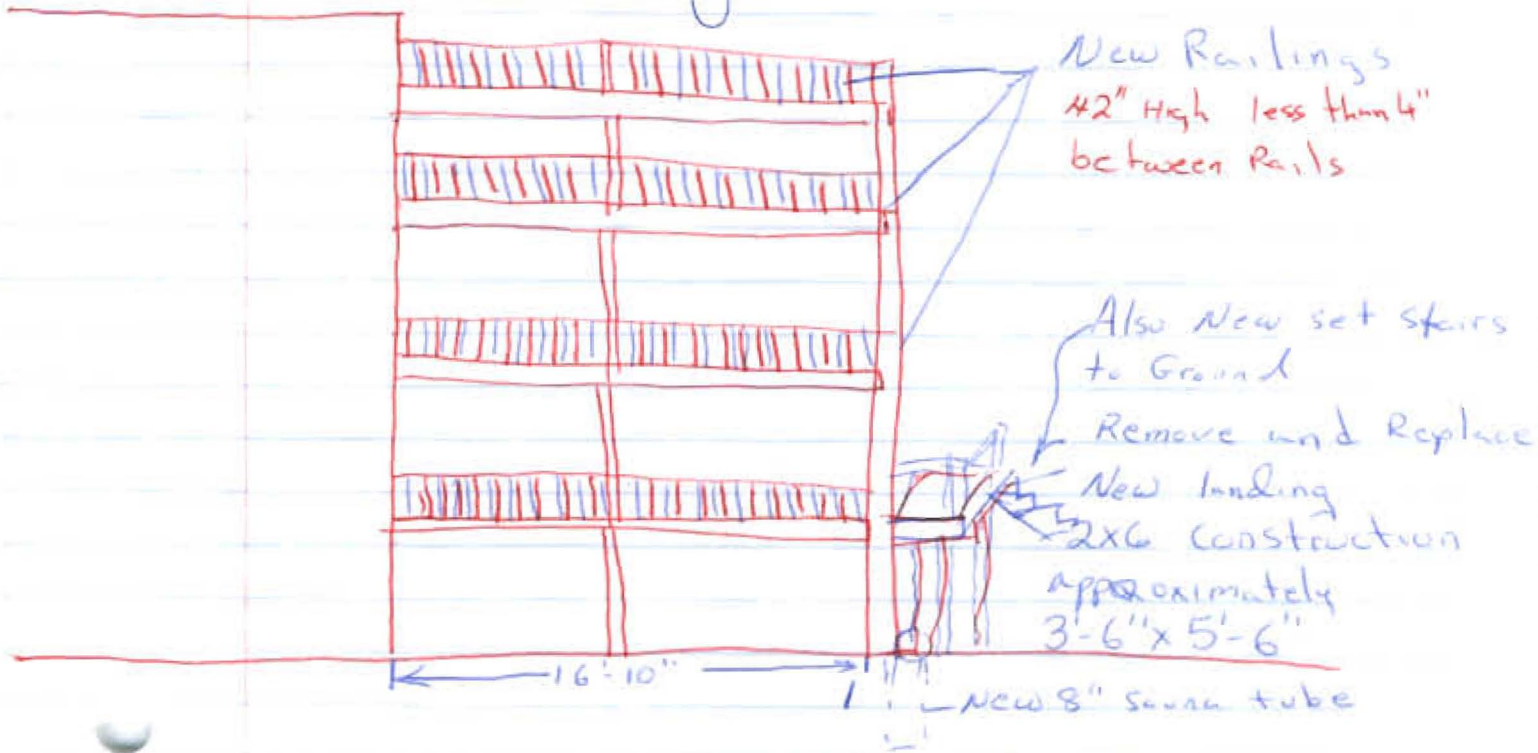 New Railings
42" High less than 4"
between Rails
Also New set stairs
to Ground
Remove and Replace
New landing
2x6 construction
approximately
3'-6" x 5'-6"
16'-10"
New 8" sauna tube